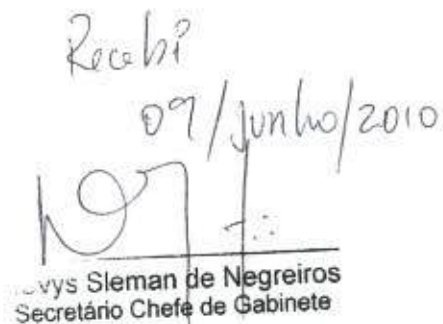 Recebi
09/junho/2010
Sleman de Negreiros
Secretário Chefe de Gabinete